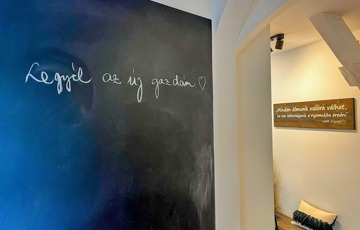 Legyél az új gazdám ♡
„Minden álmunk valóra válhat,
ha van bátorságunk a nyomukba eredni”
Walt Disney